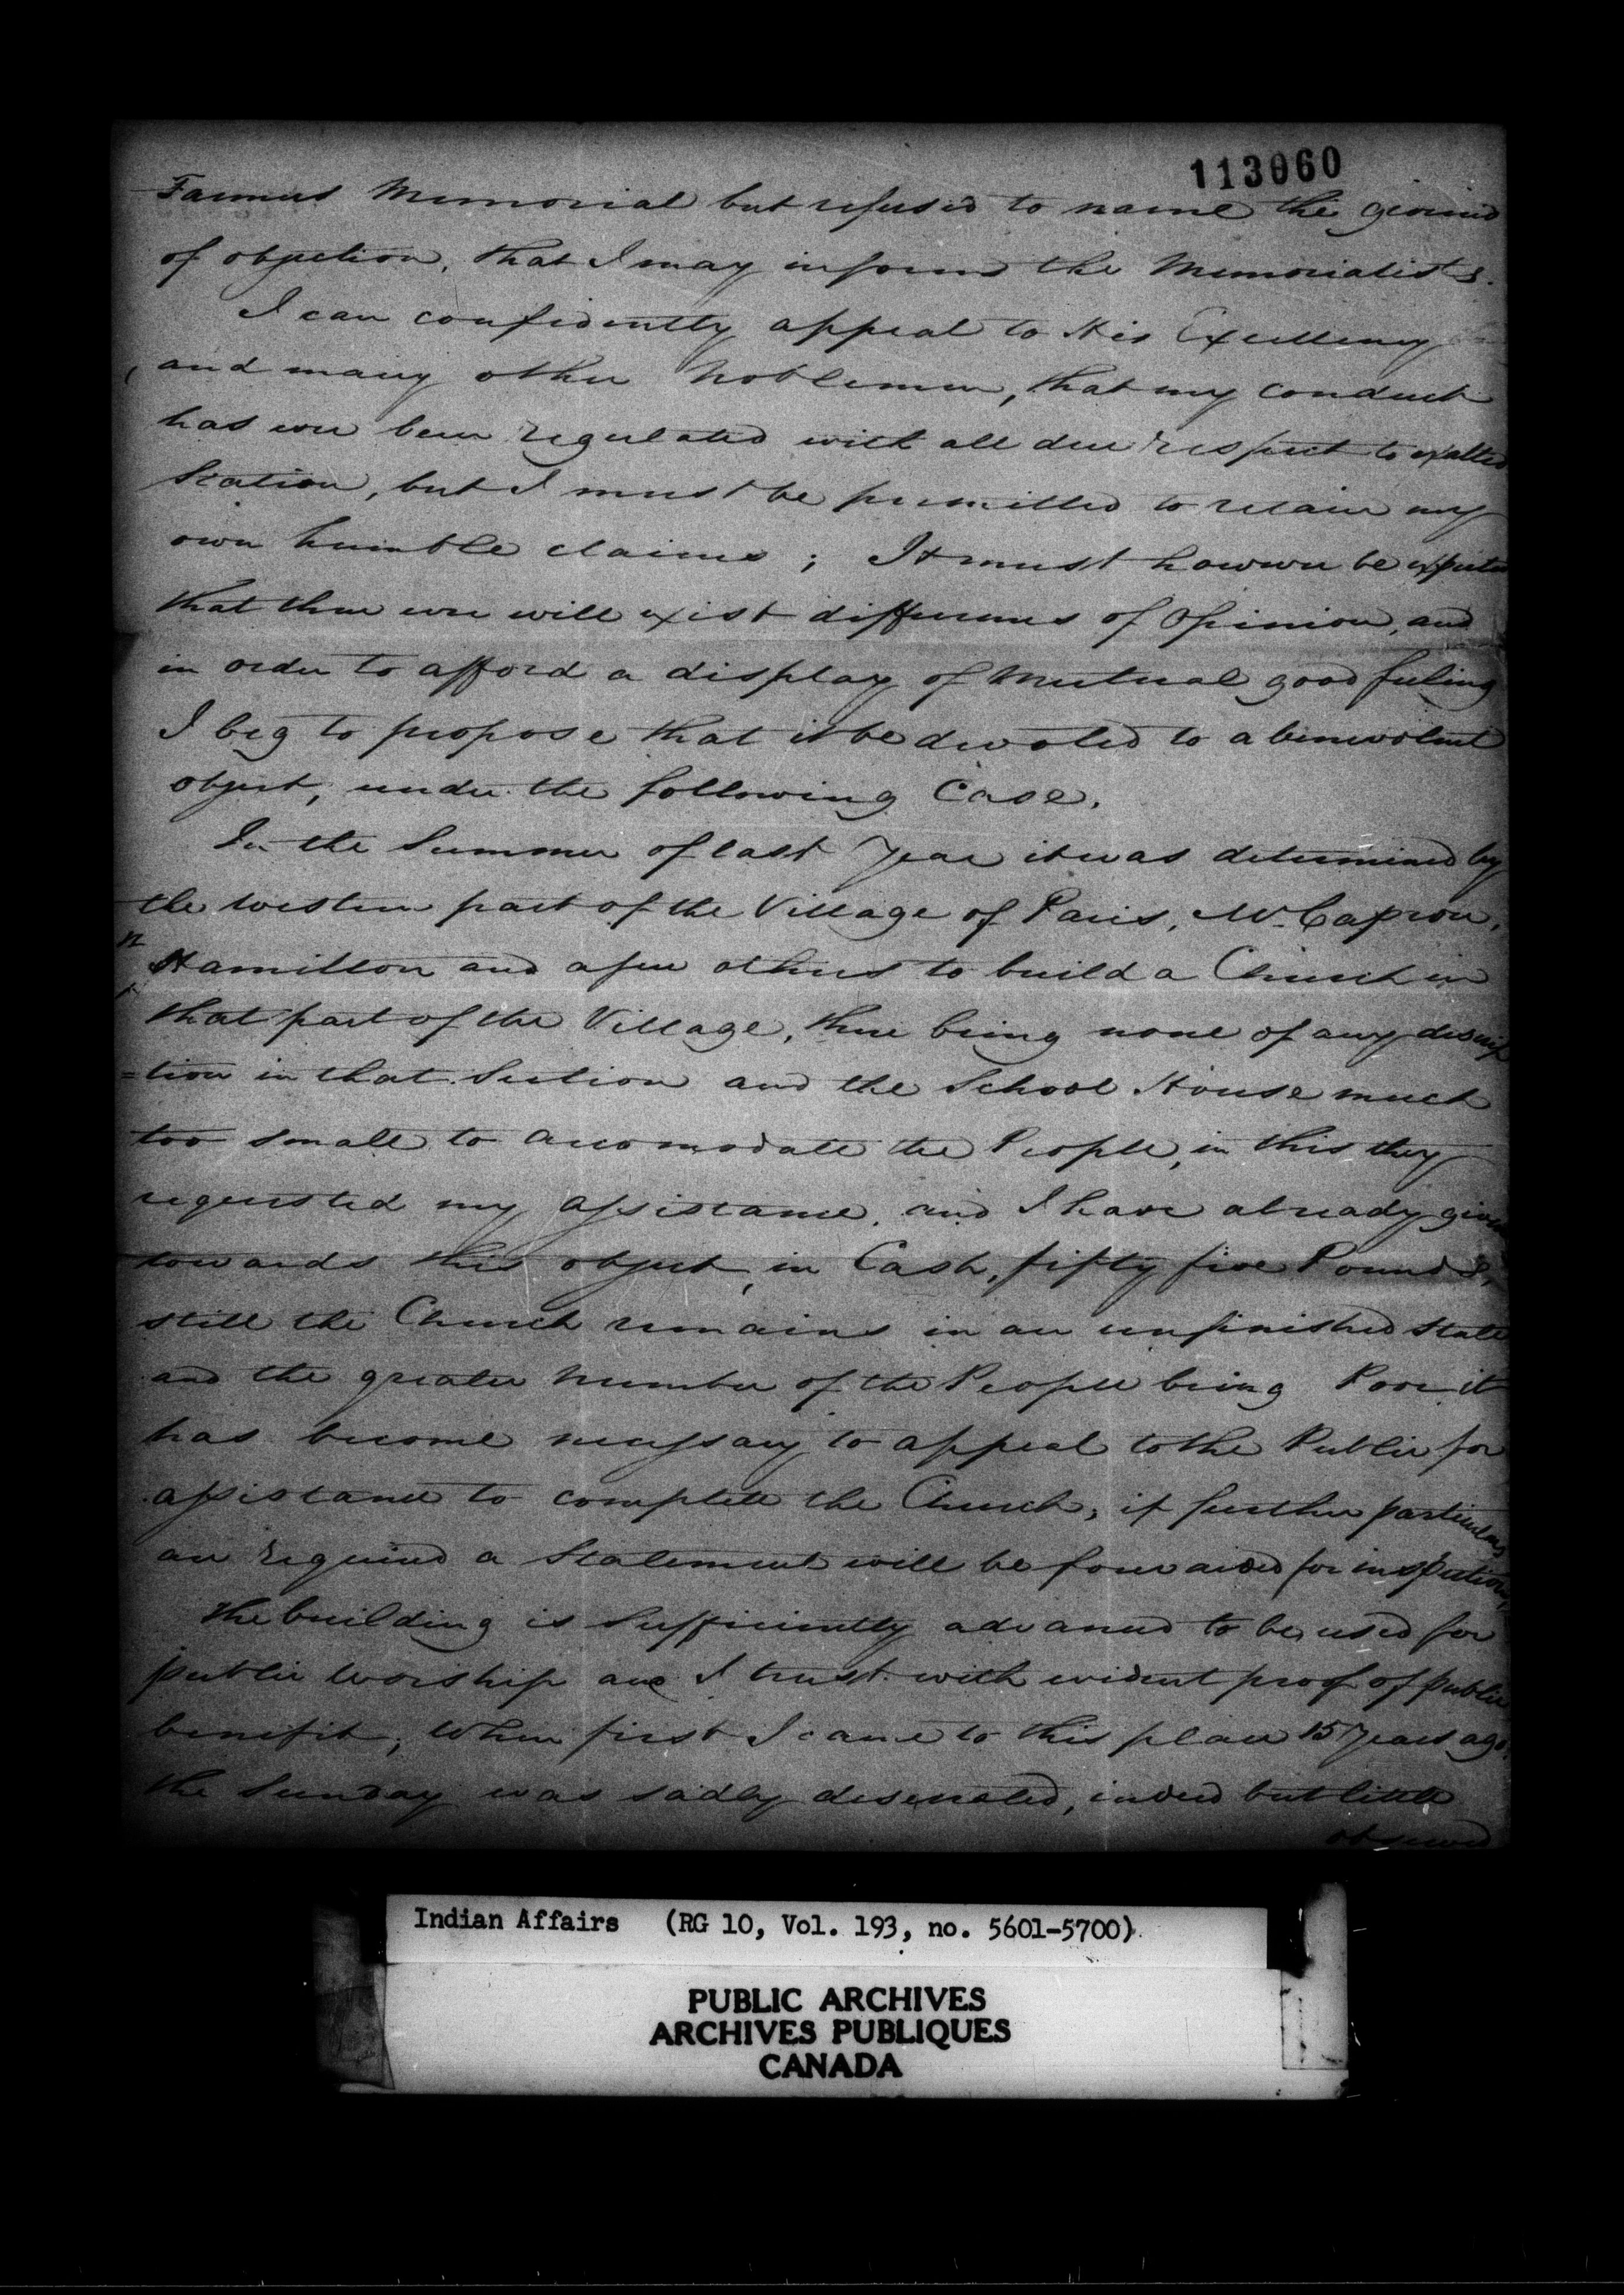 113060
Farmers Memorial but refused to name the ground
of objection, that I may inform the Memorialists.
I can confidently appeal to His Excellency
and many other Noblemen, that my conduct
has ever been regulated with all due respect to exalted
Station, but I must be permitted to retain my
own humble claims; It must however be expected
that there ever will exist differences of Opinion, and
in order to afford a display of Mutual good feeling
I beg to propose that it be devoted to a benevolent
object, under the following Case.
In the Summer of last Year it was determined by
the western part of the Village of Paris, Mr. Capron,
Hamilton and a few others to build a Church in
that part of the Village, there being none of any descrip
=tion in that Section and the School House much
too small to accomodate the People, in this they
requested my assistance, and I have already given
towards this object, in Cash, fifty five Pounds,
still the Church remains in an unfinished state
and the greater Number of the People being Poor it
has become necessary to appeal to the Public for
assistance to complete the Church, if further particulars
are required a Statement will be forwarded for inspection,
The building is sufficiently advanced to be used for
public Worship and I trust with evident proof of public
benefit; When first I came to this place 15 Years ago,
the Sunday was sadly desecrated, indeed but little
observed
Indian Affairs (RG 10, Vol. 193, no. 5601-5700)
PUBLIC ARCHIVES
ARCHIVES PUBLIQUES
CANADA